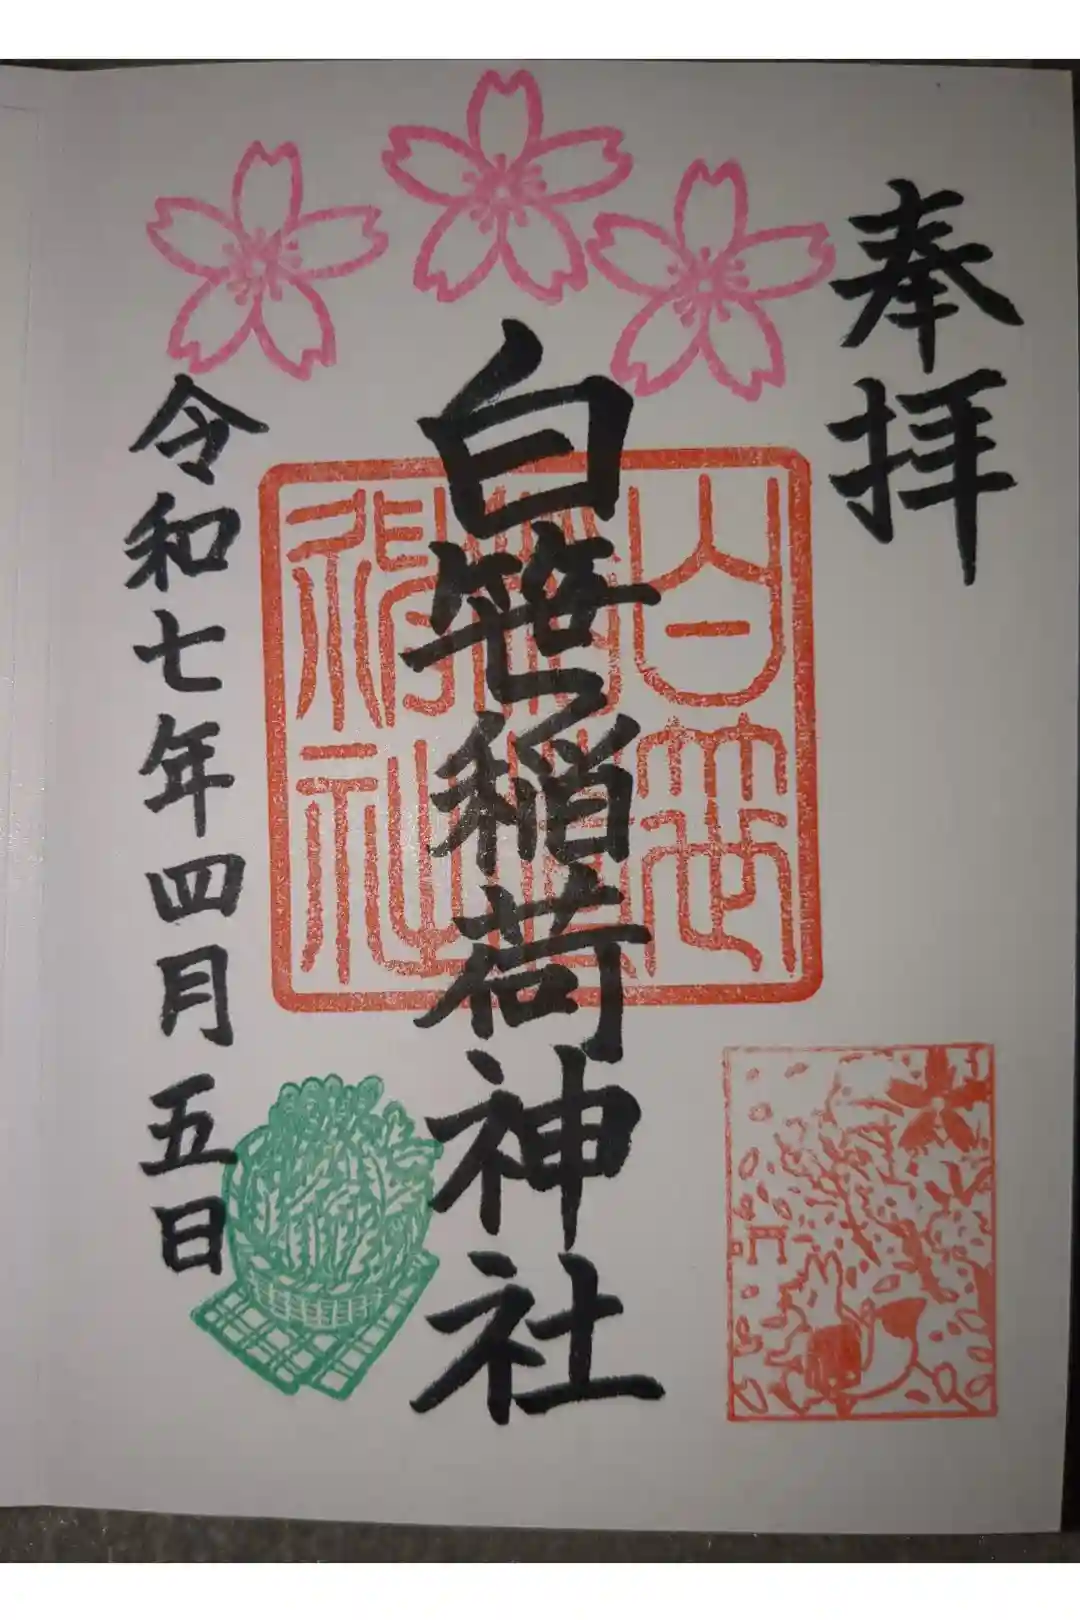 奉拝
白笹稲荷神社
白笹
稲荷
神社
令和七年四月五日